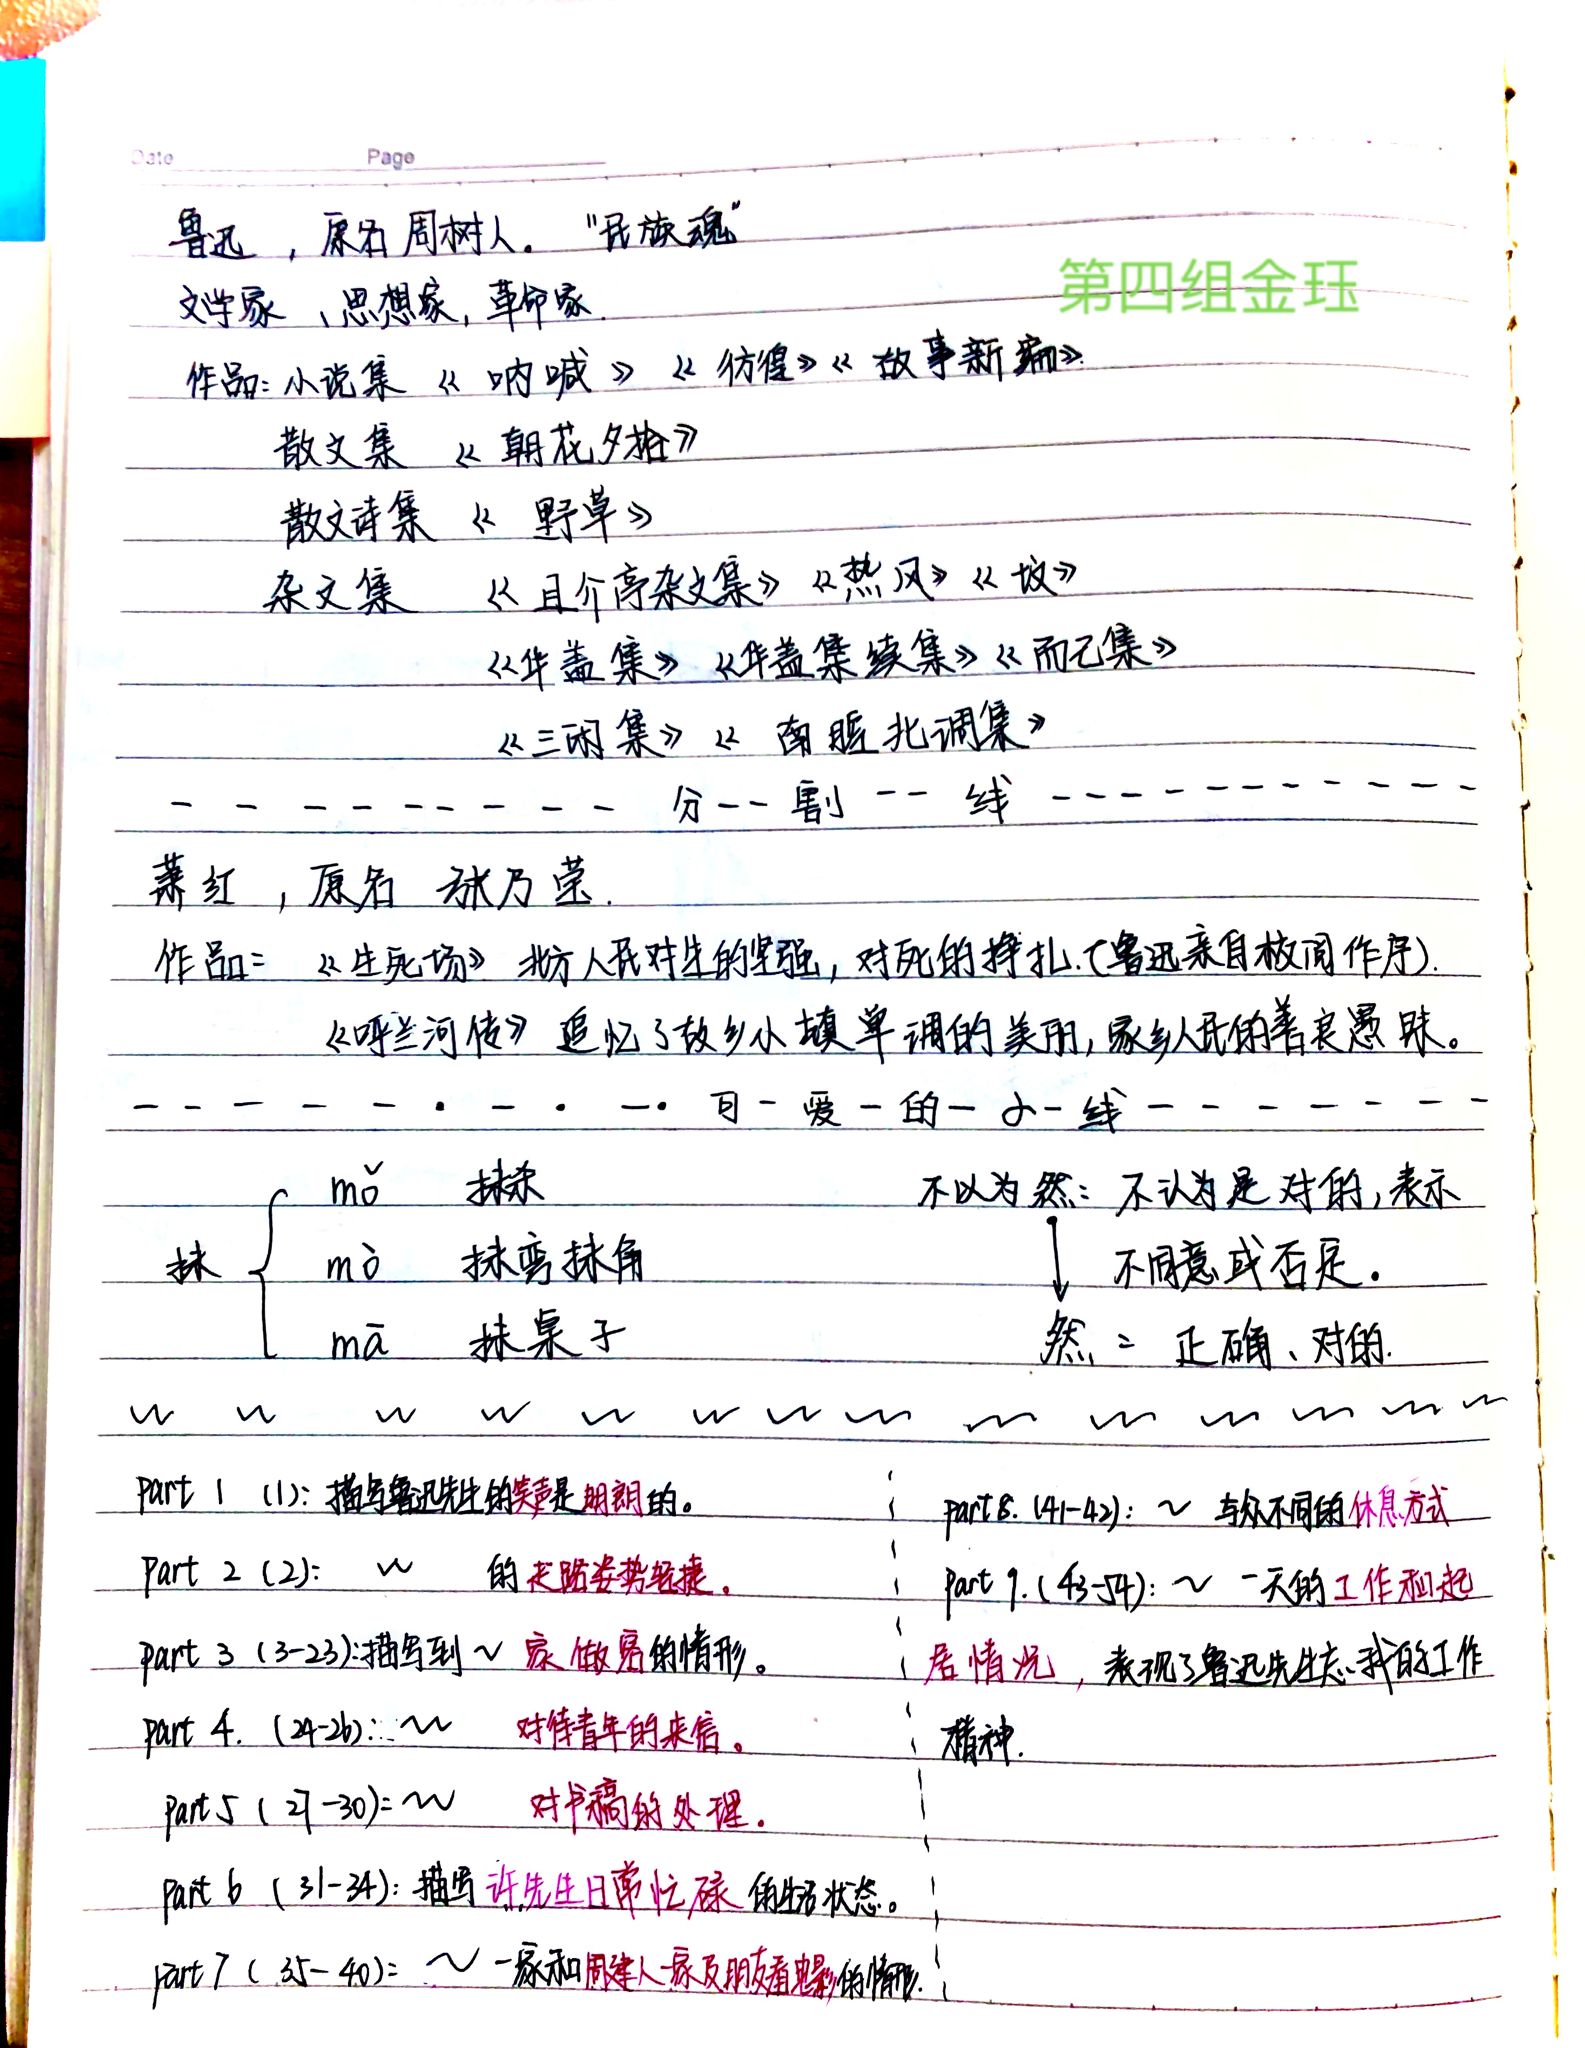 Date Page
鲁迅，原名周树人。“民族魂”
第四组金珏
文学家、思想家，革命家.
作品：小说集《呐喊》《彷徨》《故事新编》.
散文集《朝花夕拾》
散文诗集《野草》
杂文集《且介亭杂文集》《热风》《坟》
《华盖集》《华盖集续集》《而已集》
《三闲集》《南腔北调集》
分--割--线
萧红，原名 张乃莹.
作品：《生死场》北方人民对生的坚强，对死的挣扎.(鲁迅亲自校阅作序).
《呼兰河传》追忆了故乡小镇单调的美丽，家乡人民的善良愚昧。
可-爱-的-小-线
抹
mǒ 抹杀
mò 抹弯抹角
mā 抹桌子
不以为然：不认为是对的，表示
不同意或否定。
然：正确、对的.
part 1 (1)：描写鲁迅先生的笑声是明朗的。
part 2 (2)： ～ 的走路姿势轻捷。
part 3 (3-23)：描写到～家做客的情形。
part 4. (24-26)：～ 对待青年的来信。
part 5 (27-30)：～ 对书稿的处理。
part 6 (31-34)：描写许先生日常忙碌的生活状态。
part 7 (35-40)：～一家和周建人一家及朋友看电影的情形.
part 8. (41-42)：～ 与众不同的休息方式
part 9. (43-54)：～ 一天的工作和起
居情况，表现了鲁迅先生忘我的工作
精神.